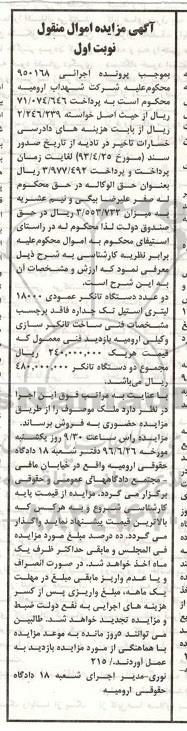 آگهی مزایده اموال منقول
نوبت اول
بموجب پرونده اجرائی ۹۵۰۱۶۸
محکوم‌علیه شرکت شهداب ارومیه
محکوم است به پرداخت ۷۱/۰۷۴/۶۴۶
ریال از حیث اصل خواسته ۲/۲۴۶/۳۳۹
ریال از بابت هزینه های دادرسی
خسارات تاخیر در تادیه از تاریخ صدور
سند (مورخ ۹۳/۴/۲۵) لغایت زمان
پرداخت و پرداخت ۳/۹۷۷/۴۹۲ ریال
بعنوان حق الوکاله در حق محکوم
له صفر علیرضا بیگی و نیم عشریه
به میزان ۳/۵۵۳/۷۳۲ ریال در حق
صندوق دولت لذا محکوم له در راستای
استیفای محکوم به اموال محکوم‌علیه
برابر نظریه کارشناسی به شرح ذیل
معرفی نمود که ارزش و مشخصات آن
به این شرح است.
دو عدد دستگاه تانکر عمودی ۱۸۰۰۰
لیتری استیل تک جداره فاقد برچسب
مشخصات فنی ساخت تانکر سازی
وکیلی ارومیه بازدید فنی معمول که
قیمت هریک ۲۴۰,۰۰۰,۰۰۰ ریال
مجموع دو دستگاه تانکر ۴۸۰,۰۰۰,۰۰۰
ریال می‌باشد.
با عنایت به مراتب فوق این اجرا
در نظر دارد ملک موصوف را از طریق
مزایده حضوری به فروش برساند.
مزایده راس ساعت ۹/۳۰ روز یکشنبه
مورخه ۹۶/۶/۲۶ دفتر شعبه ۱۸ دادگاه
حقوقی ارومیه واقع در خیابان مافی
- مجتمع دادگاههای عمومی و حقوقی
برگزار می گردد. مزایده از قیمت پایه
کارشناسی شروع و به هرکس که
بالاترین قیمت پیشنهاد نماید واگذار
می گردد. ده درصد مبلغ مورد مزایده
فی المجلس و مابقی حداکثر ظرف یک
ماه اخذ خواهد شد. در صورت انصراف
و یا عدم واریز مابقی مبلغ در مهلت
یک ماهه، مبلغ واریزی پس از کسر
هزینه های اجرایی به نفع دولت ضبط
و مزایده تجدید خواهد شد. طالبین
می توانند ۵روز مانده به موعد مزایده
با هماهنگی از مورد مزایده بازدید به
عمل آوردند. / ۲۱۵
نوری-مدیر اجرای شعبه ۱۸ دادگاه
حقوقی ارومیه